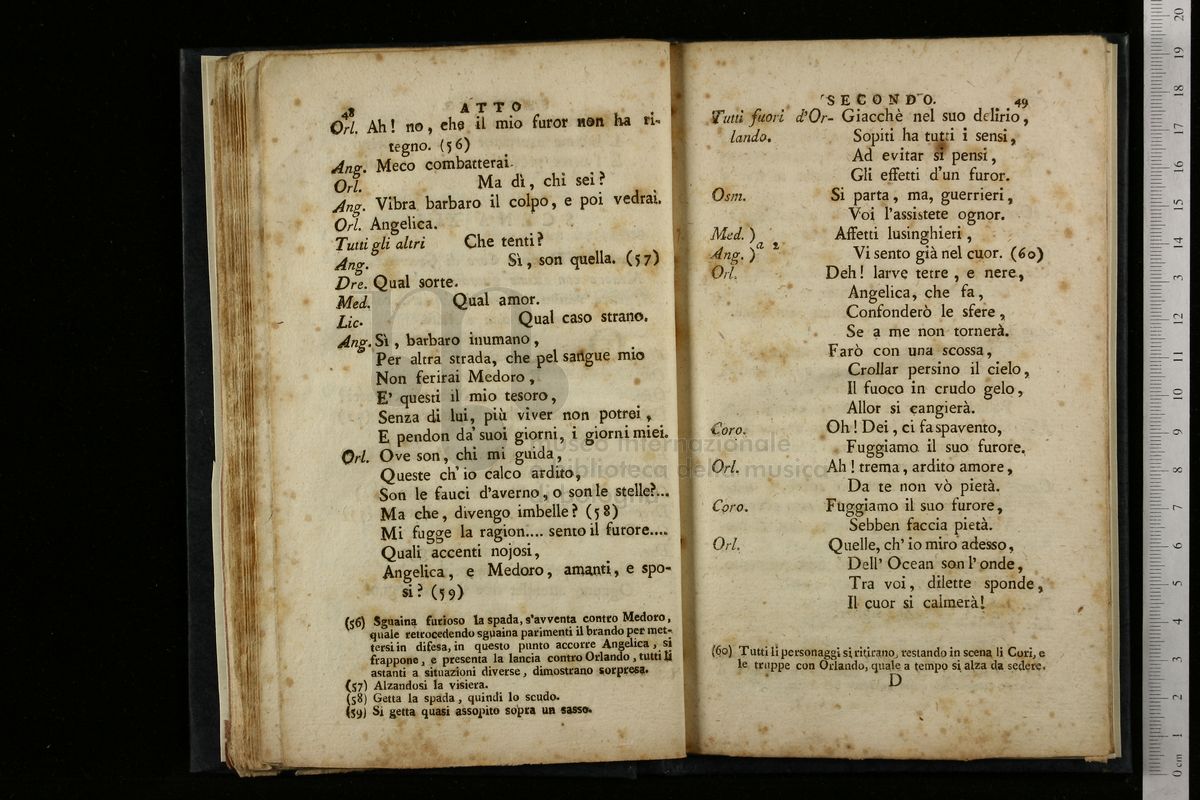 48 ATTO
Orl. Ah! no, che il mio furor non ha ri-
tegno. (56)
Ang. Meco combatterai.
Orl. Ma dì, chi sei?
Ang. Vibra barbaro il colpo, e poi vedrai.
Orl. Angelica.
Tutti gli altri Che tenti?
Ang. Sì, son quella. (57)
Dre. Qual sorte.
Med. Qual amor.
Lic. Qual caso strano.
Ang. Sì, barbaro inumano,
Per altra strada, che pel sangue mio
Non ferirai Medoro,
E' questi il mio tesoro,
Senza di lui, più viver non potrei,
E pendon da' suoi giorni, i giorni miei.
Orl. Ove son, chi mi guida,
Queste ch' io calco ardito,
Son le fauci d'averno, o son le stelle?...
Ma che, divengo imbelle? (58)
Mi fugge la ragion.... sento il furore....
Quali accenti nojosi,
Angelica, e Medoro, amanti, e spo-
si? (59)
(56) Sguaina furioso la spada, s'avventa contro Medoro,
quale retrocedendo sguaina parimenti il brando per met-
tersi in difesa, in questo punto accorre Angelica, si
frappone, e presenta la lancia contro Orlando, tutti li
astanti a situazioni diverse, dimostrano sorpresa.
(57) Alzandosi la visiera.
(58) Getta la spada, quindi lo scudo.
(59) Si getta quasi assopito sopra un sasso.
SECONDO. 49
Tutti fuori d'Or- Giacchè nel suo delirio,
lando. Sopiti ha tutti i sensi,
Ad evitar si pensi,
Gli effetti d'un furor.
Osm. Si parta, ma, guerrieri,
Voi l'assistete ognor.
Med. ) a 2 Affetti lusinghieri,
Ang. ) Vi sento già nel cuor. (60)
Orl. Deh! larve tetre, e nere,
Angelica, che fa,
Confonderò le sfere,
Se a me non tornerà.
Farò con una scossa,
Crollar persino il cielo,
Il fuoco in crudo gelo,
Allor si cangierà.
Coro. Oh! Dei, ci fa spavento,
Fuggiamo il suo furore.
Orl. Ah! trema, ardito amore,
Da te non vò pietà.
Coro. Fuggiamo il suo furore,
Sebben faccia pietà.
Orl. Quelle, ch' io miro adesso,
Dell' Ocean son l' onde,
Tra voi, dilette sponde,
Il cuor si calmerà!
(60) Tutti li personaggi si ritirano, restando in scena li Cori, e
le truppe con Orlando, quale a tempo si alza da sedere.
D
museo internazionale
e biblioteca della musica
di bologna
0 cm 1 2 3 4 5 6 7 8 9 10 11 12 13 14 15 16 17 18 19 20